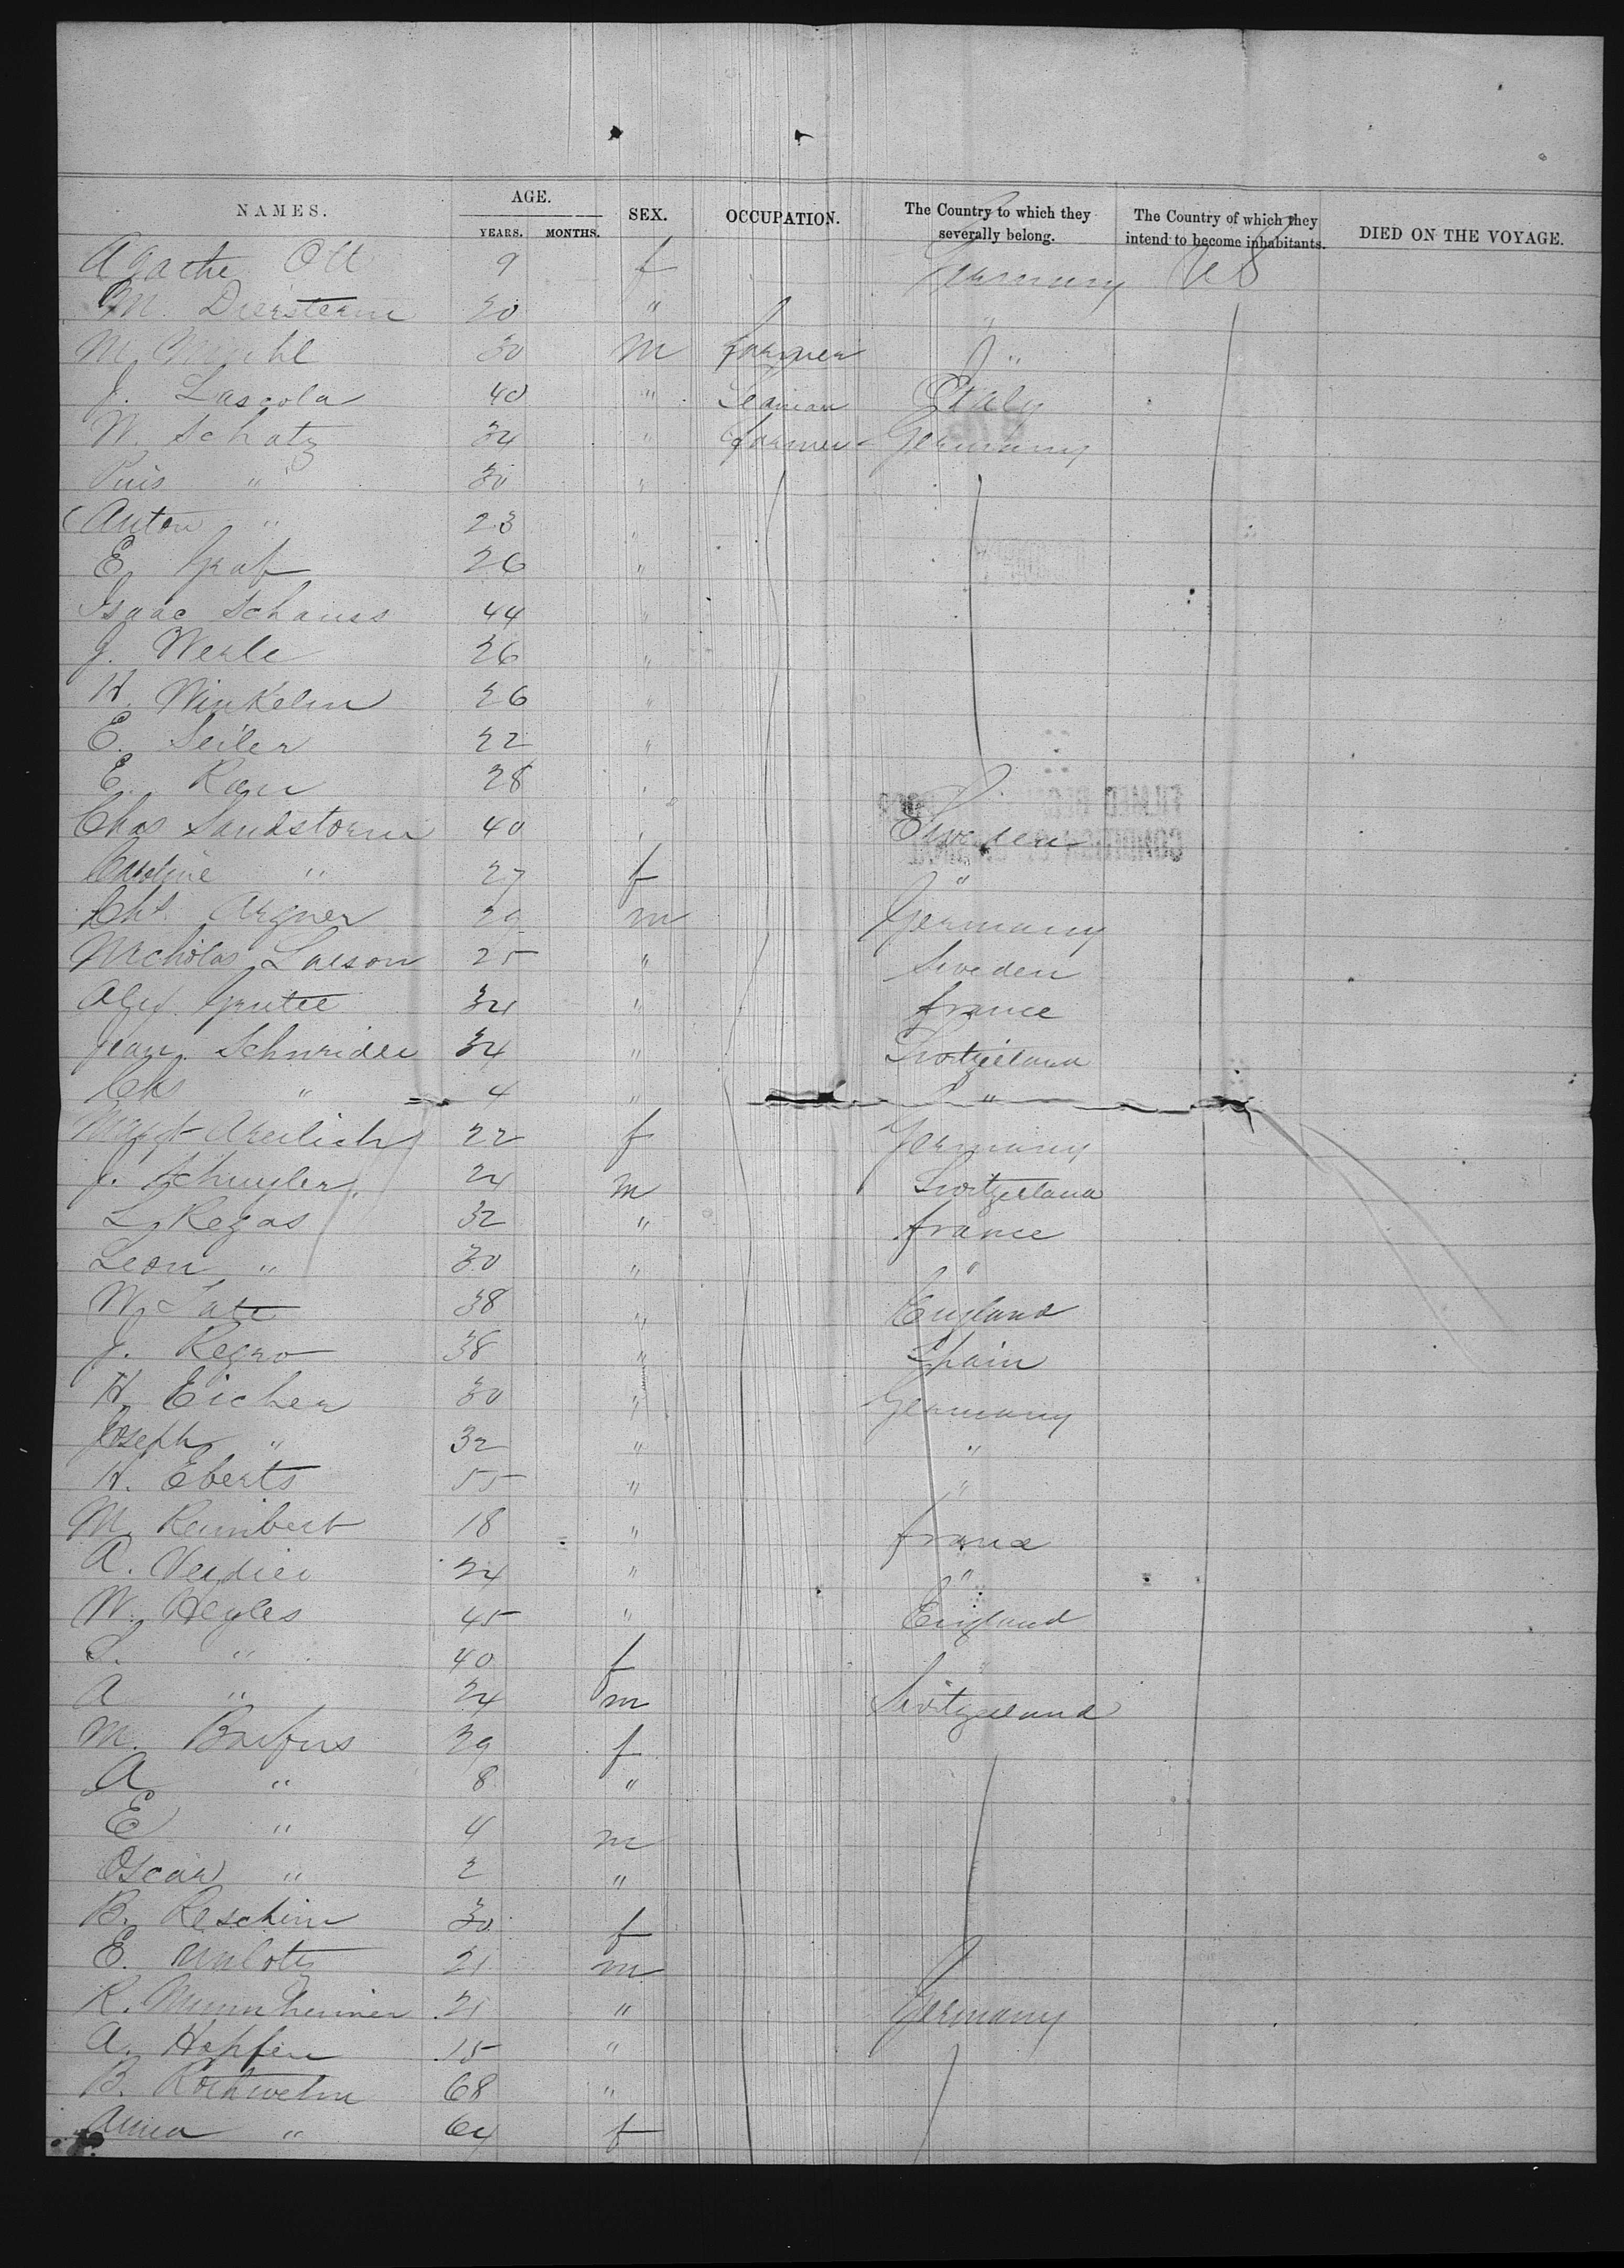 NAMES. AGE. YEARS. MONTHS. SEX. OCCUPATION. The Country to which they severally belong. The Country of which they intend to become inhabitants. DIED ON THE VOYAGE.
Agathe Ott 9 f Germany U S
M. 20 " "
M. 30 m farmer "
J. Lascola 40 " Seaman Italy
W. Schatz 34 " farmer Germany
Pius " 30 "
Anton " 23 "
E. Graf 26 "
Isaac Schauss 44 "
J. Werle 26 "
H. Winkelm 26 "
E. Seiler 22 "
E. Rau 28 "
Chas Sandstorm 40 " Sweden
Caroline " 27 f "
Cht. Argner 29 m Germany
Nicholas Larson 25 " Sweden
34 " france
Jean Schneider 34 " Switzerland
Chs " 4 " "
Margt 22 f Germany
J. Schuyler 24 m Switzerland
L. Regas 32 " france
Leon " 30 " "
W. Tate 38 " England
J. Regro 38 " Spain
H. Eicher 30 " Germany
Joseph " 32 " "
H. Eberts 55 " "
M. Rambert 18 " france
A. Verdier 24 " "
W. Heyles 45 " England
S. " 40 f "
A " 24 m Switzerland
M. 29 f
A " 8 "
E " 4 m
Oscar " 2 "
B. Reschim 30 f
E. 21 m
R. Munnheimer 21 " Germany
A. Hopfen 15 "
B. 68 "
Anna " 64 f